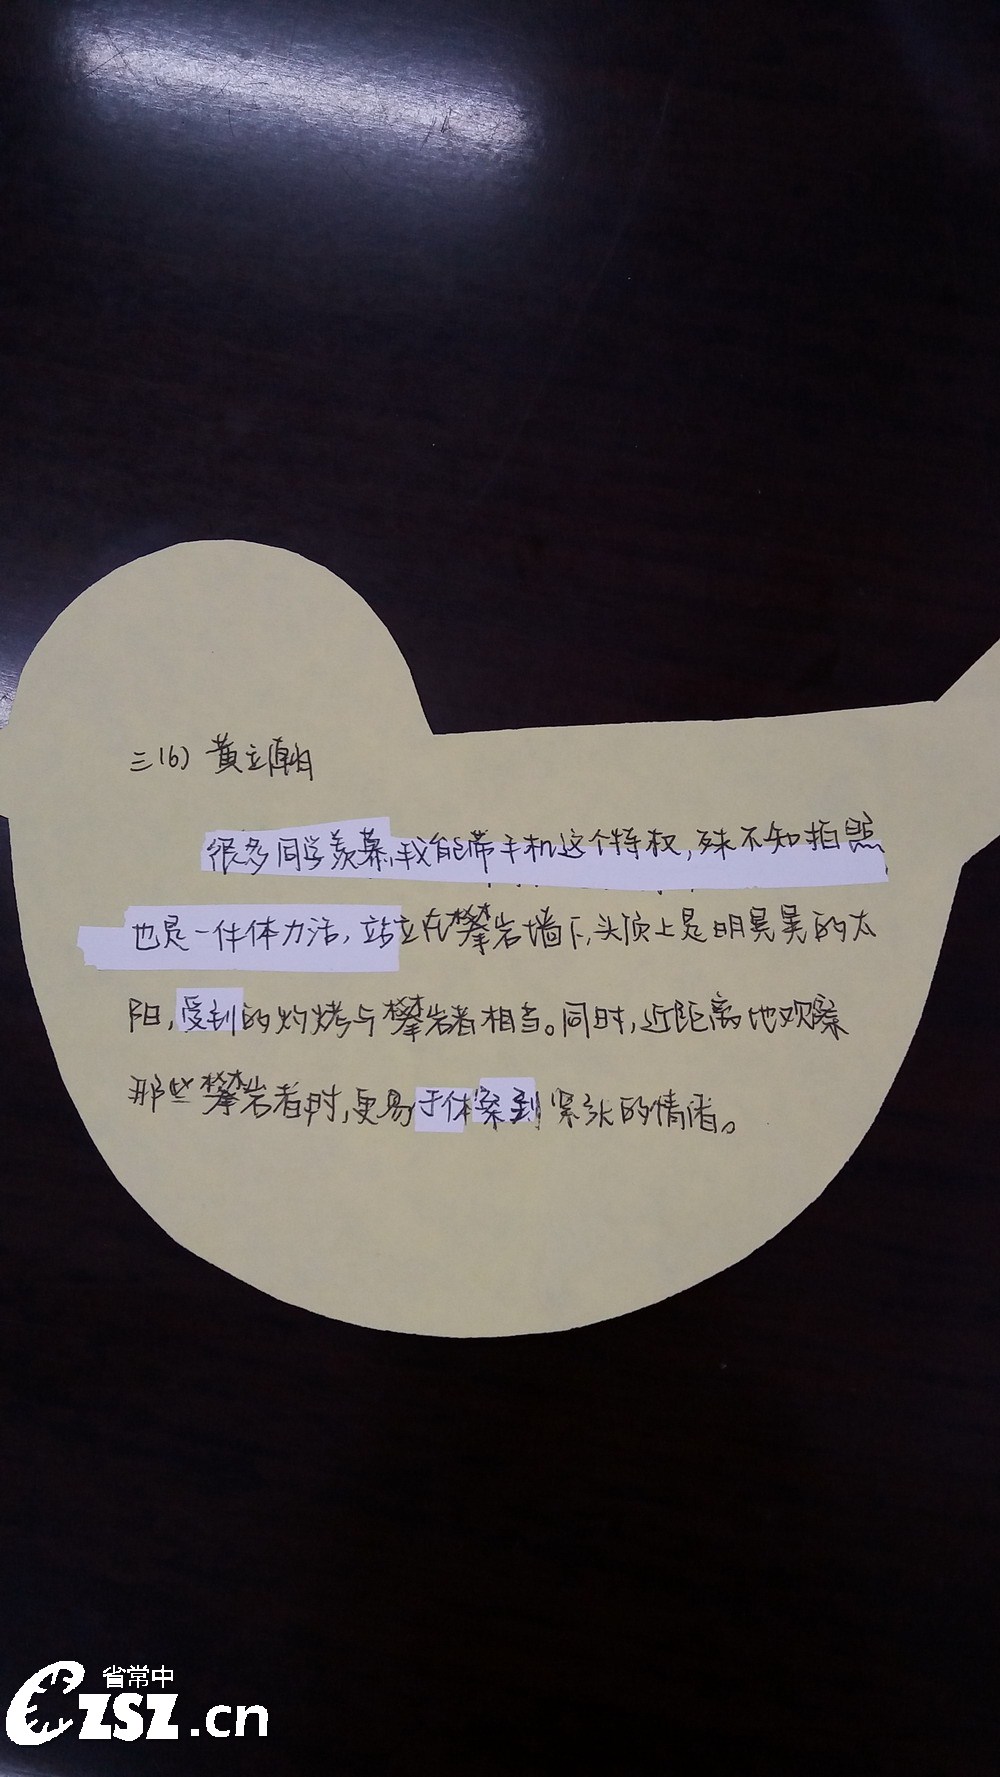 三(6) 黄立朝
很多同学羡慕,我能带手机这个特权,殊不知拍照
也是一件体力活,站立在攀岩墙下,头顶上是明晃晃的太
阳,受到的灼烤与攀岩者相当。同时,近距离地观察
那些攀岩者时,更易于体察到紧张的情绪。
省常中
CZSZ.cn